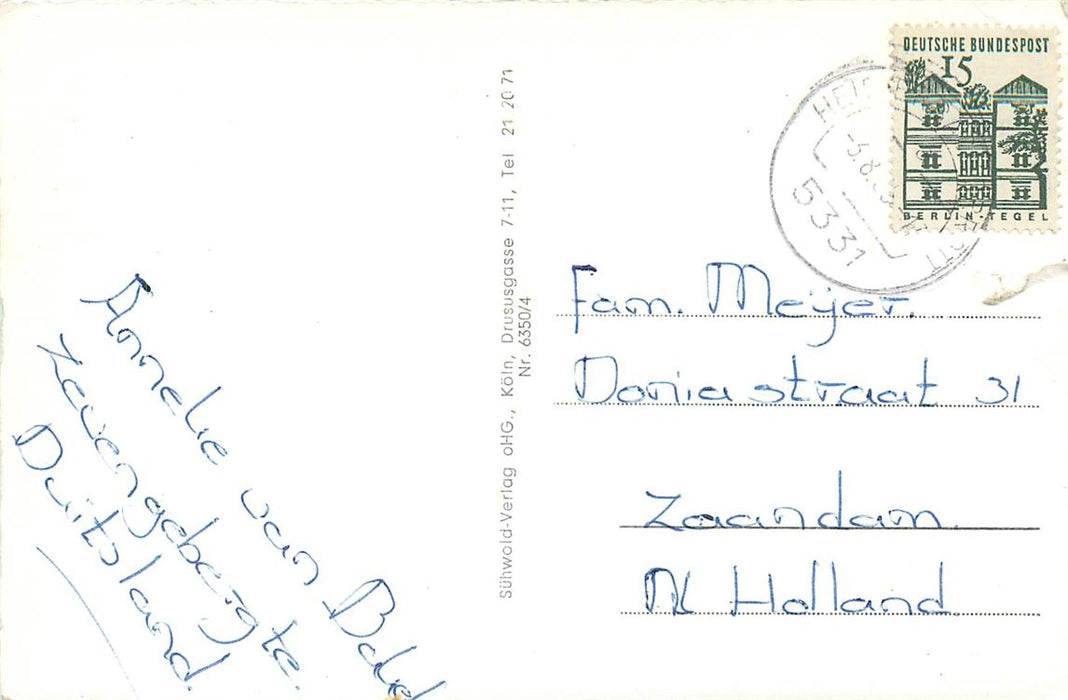 DEUTSCHE BUNDESPOST
15
BERLIN-TEGEL
5331
Fam. Meijer.
Doniastraat 31
Zaandam.
Holland.
Annelie van
Zevengebergte.
Duitsland.
Sühwold-Verlag oHG., Köln, Drususgasse 7-11, Tel 21 20 71
Nr. 6350/4